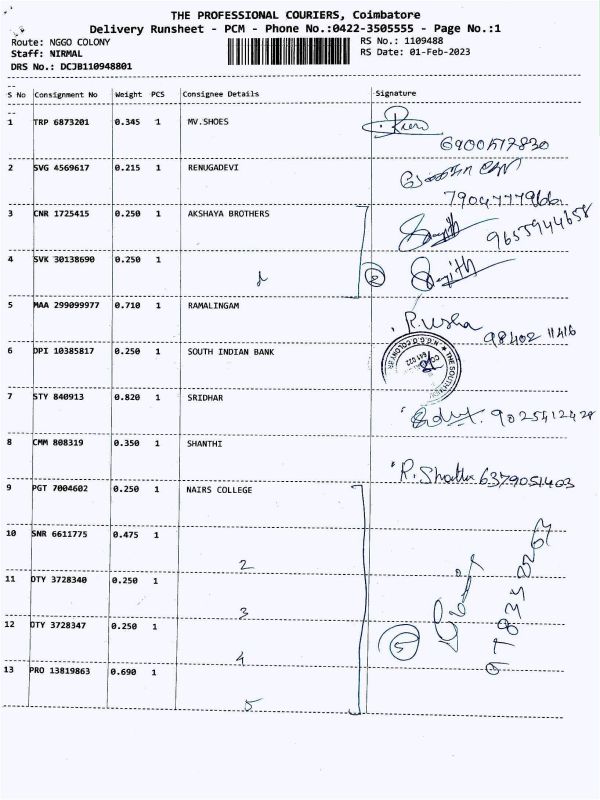 THE PROFESSIONAL COURIERS, Coimbatore
Delivery Runsheet - PCM - Phone No.:0422-3505555 - Page No.:1
Route: NGGO COLONY RS No.: 1109488
Staff: NIRMAL RS Date: 01-Feb-2023
DRS No.: DCJB110948801
S No Consignment No Weight PCS Consignee Details Signature
1 TRP 6873201 0.345 1 MV.SHOES
2 SVG 4569617 0.215 1 RENUGADEVI
3 CNR 1725415 0.250 1 AKSHAYA BROTHERS 9655944658
4 SVK 30138690 0.250 1 2
5 MAA 299099977 0.710 1 RAMALINGAM R. Usha 98402 11416
6 DPI 10385817 0.250 1 SOUTH INDIAN BANK
7 STY 840913 0.820 1 SRIDHAR 9025412428
8 CMM 808319 0.350 1 SHANTHI R. Shanthi 6379051403
9 PGT 7004602 0.250 1 NAIRS COLLEGE
10 SNR 6611775 0.475 1 2
11 OTY 3728340 0.250 1 3
12 OTY 3728347 0.250 1 4 5
13 PRO 13819863 0.690 1 5